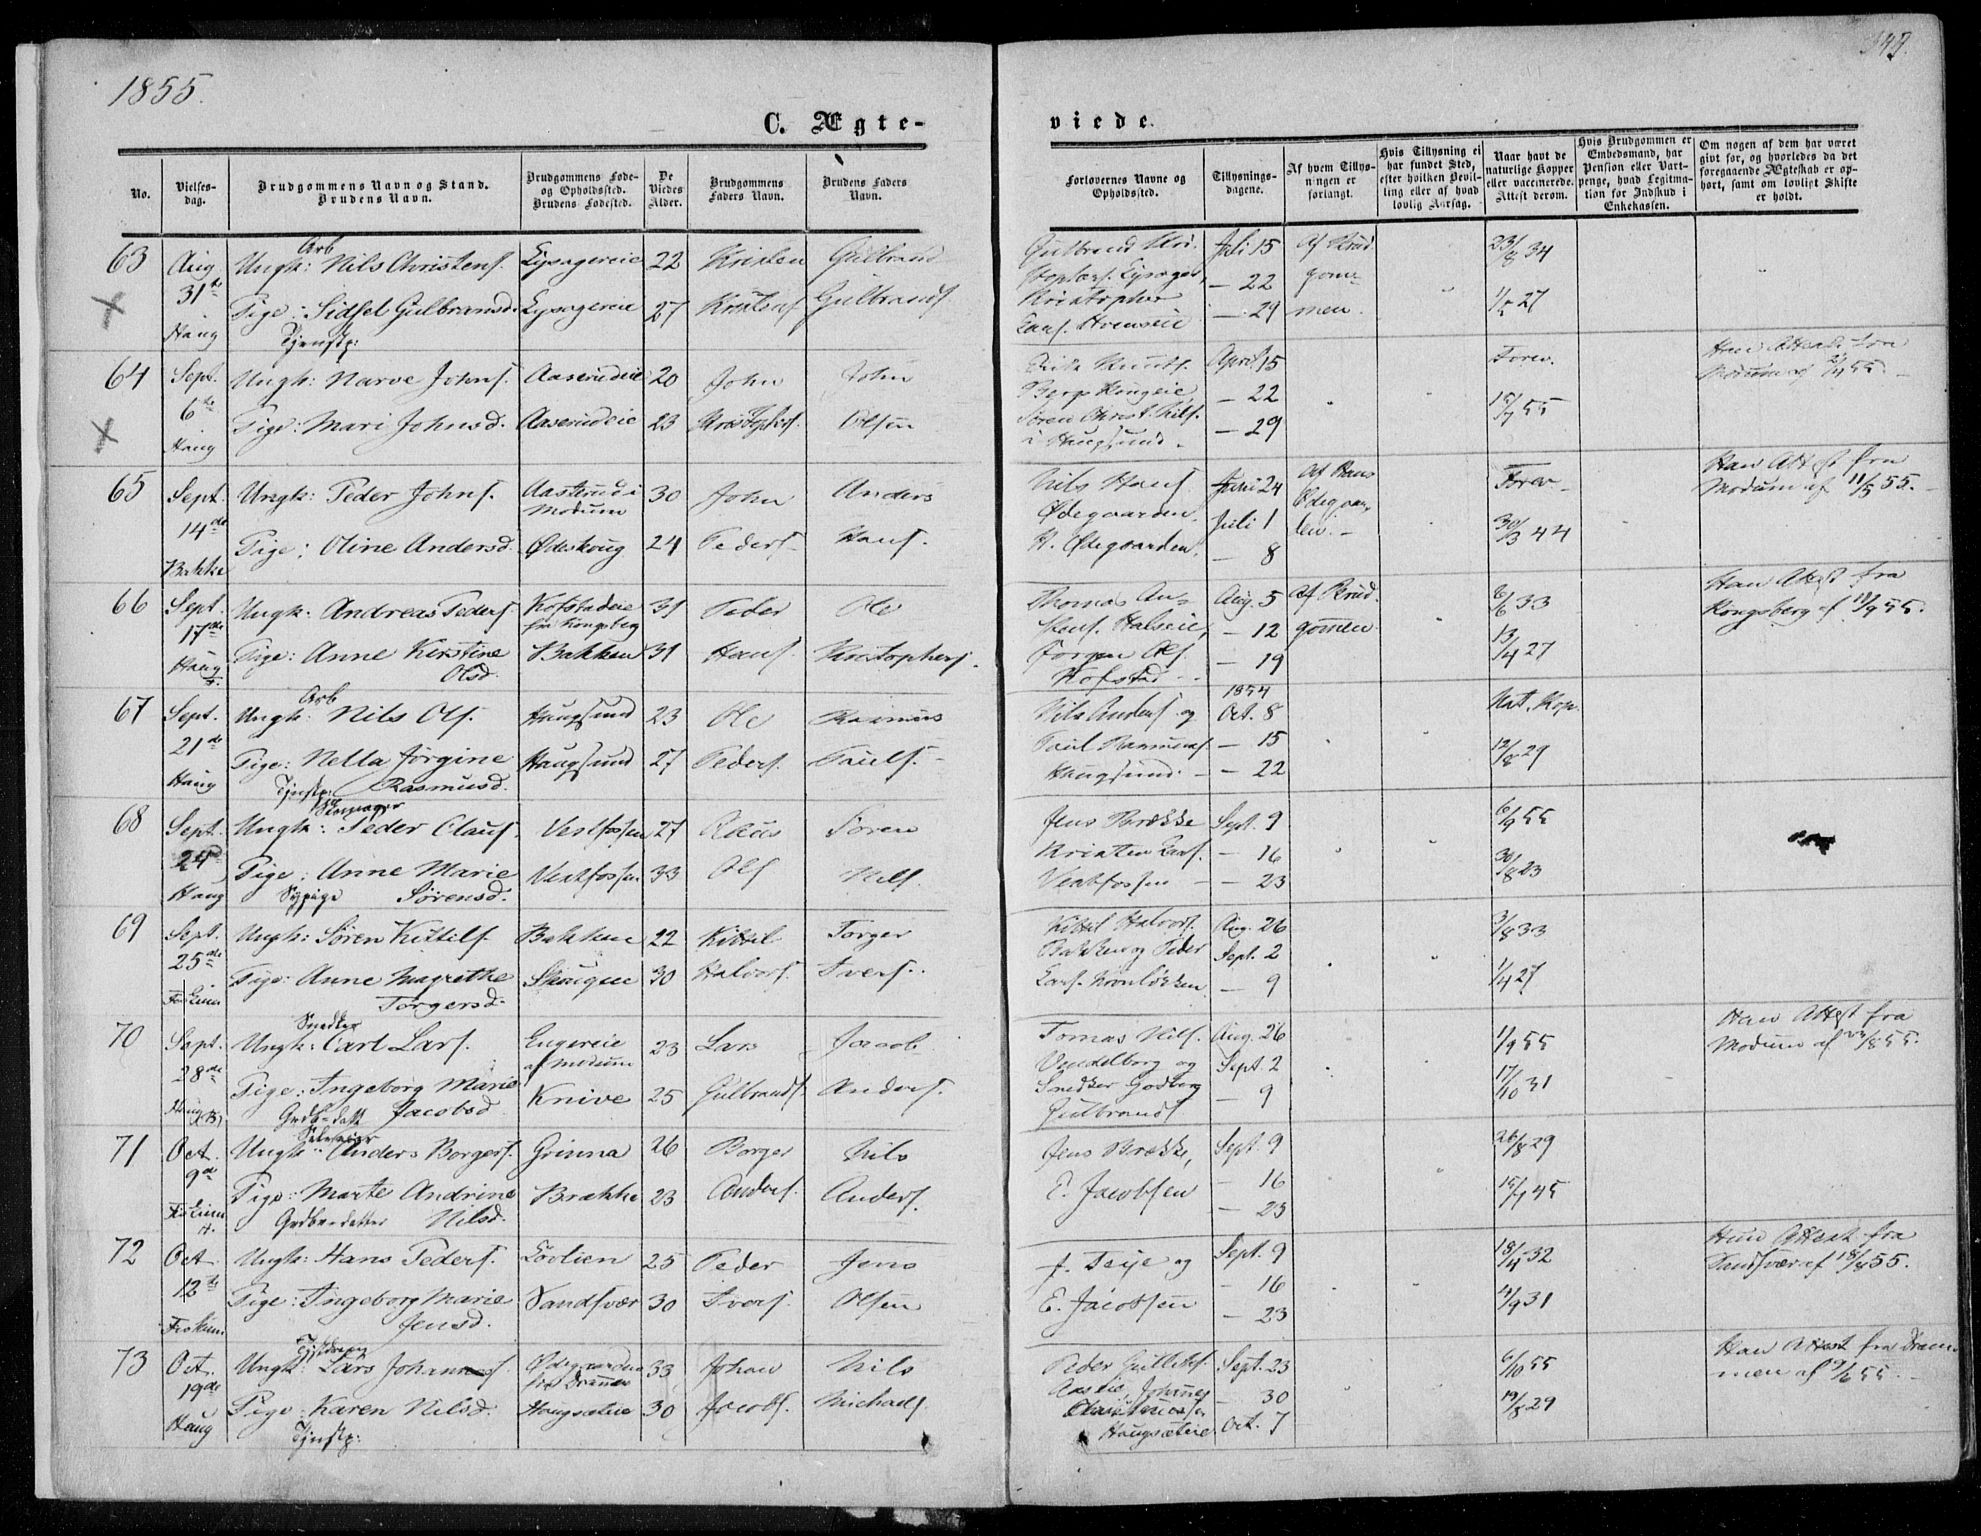 1855.
C. Ægte-
No.
Vielses-
dag.
Brudgommens Navn og Stand.
Brudens Navn.
Brudgommens Føde-
og Opholdssted.
Brudens Fødested.
De
Viedes
Alder.
Brudgommens
Faders Navn.
Brudens Faders
Navn.
63 Aug 31te Haug
Arb
Ungk: Nils Christens. Lysagereie 22 Kristen Gulbrand
Pige: Sidsel Gulbransd. Lysagereie 27 Knuts. Gulbrands.
Tjenstp:
64 Sept. 6te Haug
Ungk: Narve Johns. Aaserudeie 20 John John
Pige: Mari Johnsd. Aaserudeie 23 Kristophers. Olsen
65 Sept. 14de Bakke
Ungk: Peder Johns. Aaserud i Modum 30 John Anders
Pige: Oline Andersd. Ødeskoug 24 Peders. Hans.
66 Sept. 17de Haug
Ungk: Andreas Peders. Hofstadeie fra Kongsberg 31 Peder Ole
Pige: Anne Kirstine Olsd. Bakken 31 Hans. Kristophers.
67 Sept. 21de Haug
Arb
Ungk: Nils Ols. Haugsund 23 Ole Rasmus
Pige: Nella Jørgine Rasmusd. Haugsund 27 Peders. Pauls.
Tjnstp:
68 Sept. 24de Haug
Ungk: Peder Claus. Vestfossen 27 Claus Søren
Pige: Anne Marie Sørensd. Vestfossen 33 Ols. Nils.
Sypige
69 Sept. 25de Fiskum
Ungk: Søren Kittils. Bakken 22 Kittil Torger
Pige: Anne Magrethe Torgersd. Skougen 30 Halvors. Ivers.
70 Sept. 28de Haug (B)
Snedker
Ungk: Carl Lars. Engereie af Modum 23 Lars Jacob
Pige: Ingeborg Marie Jacobsd. Knive 25 Gulbrands. Anders.
Grdbr-datt
71 Oct. 9de Fiskum
Selveier
Ungk: Anders Borgers. Grinna 26 Borger Nils
Pige: Marte Andrine Nilsd. Brække 23 Anders. Anders.
Grdbr-datter
72 Oct. 12te Fiskum
Ungk: Hans Peders. Lövlien 25 Peder Jens
Pige: Ingeborg Marie Jensd. Sandsvær 30 Ivers. Olsen
73 Oct. 19de Haug
Tjstdreng
Ungk: Lars Johannes. Ødegaarden fra Drammen 33 Johan Nils
Pige: Karen Nilsd. Haugsæteie 30 Jacobs. Michaels.
Tjnstp:
viede.
Forlovernes Navne og
Opholdssted.
Tillysnings-
dagene.
Af hvem Tillys-
ningen er
forlangt.
Hvis Tillysning ei
har fundet Sted,
efter hvilken Bevil-
ling eller af hvad
lovlig Aarsag.
Naar havt de
naturlige Kopper
eller vaccinerede.
Attest derom.
Hvis Brudgommen er
Embedsmand, har
Pension eller Vart-
penge, hvad Legitima-
tion for Indskud i
Enkekassen.
Om nogen af dem har været
givt før, og hvorledes da det
foregaaende Ægteskab er op-
hørt, samt om lovligt Skifte
er holdt.
Gulbrand Kri- Juli 15 Af Brud- 23/8 34
stophers. Lysager, – 22 gom-
Kristopher – 29 men. 27
Lars. Horenseie
Erik Knuds. April 15 Forev. Han Attest fra
Berg Kougeie, – 22 Modum af 55.
Søren Christ. Nils. – 29 15/7 55
i Haugsund.
Nils Hans. Juni 24 Af Hans Forev. Han Attest fra
Ødegaarden. Juli 1 Ødegaar- Modum af 11/5 55.
H. Ødegaarden. – 8 den. 30/3 44
Thomas An- Aug. 5 Af Brud- 6/6 33 Han Attest fra
Halseie, – 12 gomen 13/4 27 Kongsberg af 55.
Jørgen Ols. – 19
Hofstad
1854
Nils Anders. og Oct. 8 Nat. Kop.
Paul Rasmus. – 15 12/8 29
Haugsund. – 22
Jens Brække Sept. 9 6/9 55
Kristen Lars. – 16 30/8 23
Vestfossen – 23
Kittil Halvors. Aug. 26 3/8 33
Bakken og Peder Sept. 2 1/4 27
Lars. – 9
Tomas Nils. Aug. 26 1/9 55 Han Attest fra
Vendelborg og Sept. 2 17/10 31 Modum af 55.
Snedker Godberg – 9
Gulbrands.
Jens Brække, Sept. 9 26/8 29
E. Jacobsen – 16 15/7 45
– 23
J. Teije og Sept. 9 18/4 32 Hun Attest fra
E. Jacobsen – 16 4/9 31 Sandsvær af 18/8 55.
– 23
Peder Gulliks. Sept. 23 6/10 55 Han Attest fra Dram-
Aaseie, Johannes – 30 19/8 29 men af 55.
Haugsæteie. Oct. 7